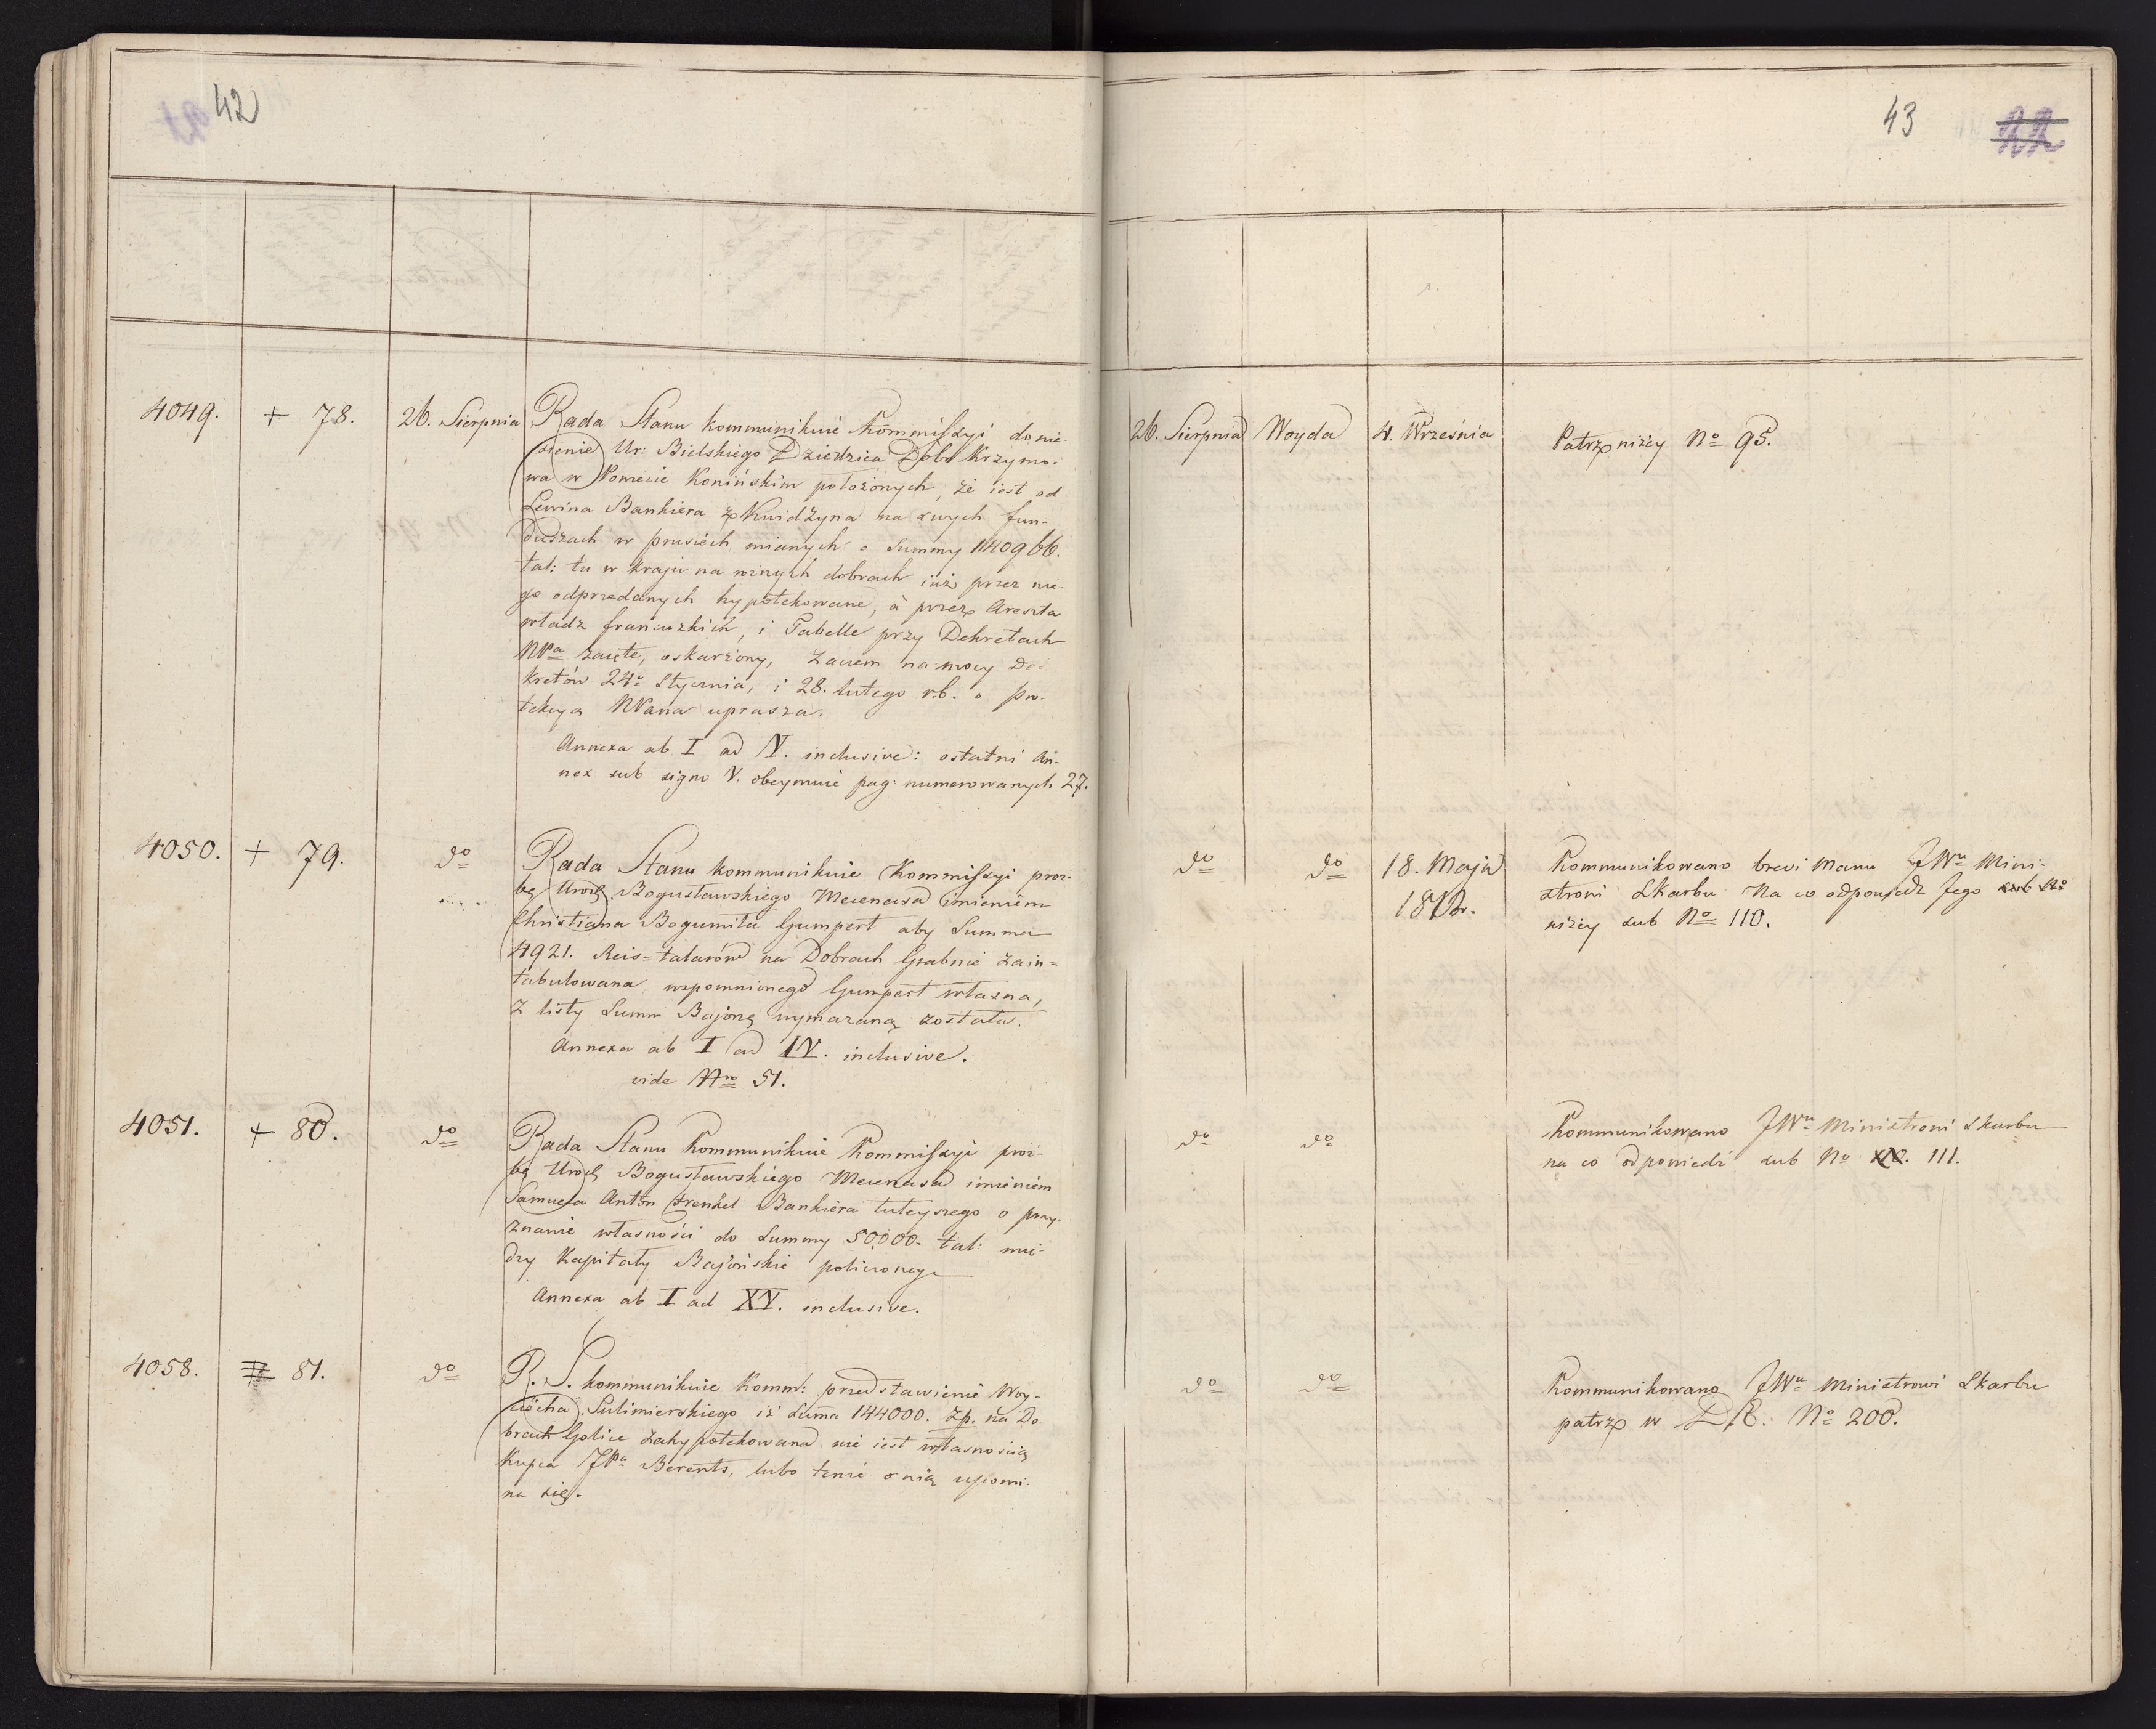 42
4049. + 78. 26. Sierpnia Rada Stanu kommunikuie Kommissyi donie-
sienie Ur: Bielskiego Dziedzica Dobr Krzymo-
wa w Powiecie Konińskim położonych, że iest od
Lewina Bankiera z Kwidzyna na swych fun-
duszach w prusiech mianych o Summy
tal: tu w kraju na roznych dobrach iuż przez nie-
go odprzedanych hypotekowane, à przez Areszta
władz francuzkich, i Tabelle przy Dekretach
NPa zaięte, oskarżony, zaczem na mocy De-
kretów 24º Stycznia, i 28. lutego r.b. o pro-
tekcyą NPana uprasza.
Annexa ab I ad V. inclusive: ostatni An-
nex sub signo V. obeymuie pag: numerowanych 27.
4050. + 79. do Rada Stanu kommunikuie Kommissyi proź-
bę Urodz. Bogusławskiego Mecenasa imieniem
Christiana Bogumiła Gumpert aby Summa
4921. Reis=talarów na Dobrach Grabnie zain=
tabulowana, wspomnionego Gumpert własna,
z listy Summ Bajonń wymazaną została.
Annexa ab I ad IV. inclusive.
vide Nro 51.
4051. + 80. do Rada Stanu Kommunikuie Kommissyi proź-
bę Urodz. Bogusławskiego Mecenasa imieniem
Samuela Anton Frenkel Bankiera tuteyszego o przy-
znanie własności do Summy 50000. tal: mię-
dzy Kapitały Bajońskie policzoney
Annexa ab I ad XV. inclusive.
4058. 81. do R. S. kommunikuie Komm: przedstawienie Woy-
ciecha Sulimierskiego iż Summa 144000. Zp. na Do-
brach Golice zahypotekowana nie iest własnością
Kupca JPa Berents, lubo tenże o nią upomi-
na się.
43 22
26. Sierpnia Woyda 4. Września Patrz niżey No 95.
do do 18. Maja Kommunikowano brevi manu JWu Mini-
1812r. strowi Skarbu Na co odpowiedź Jego sub No
niżey sub No 110.
do do Kommunikowano JWu Ministrowi Skarbu
na co odpowiedź sub No 111.
do do Kommunikowano JWu Ministrowi Skarbu
patrz w No 200.